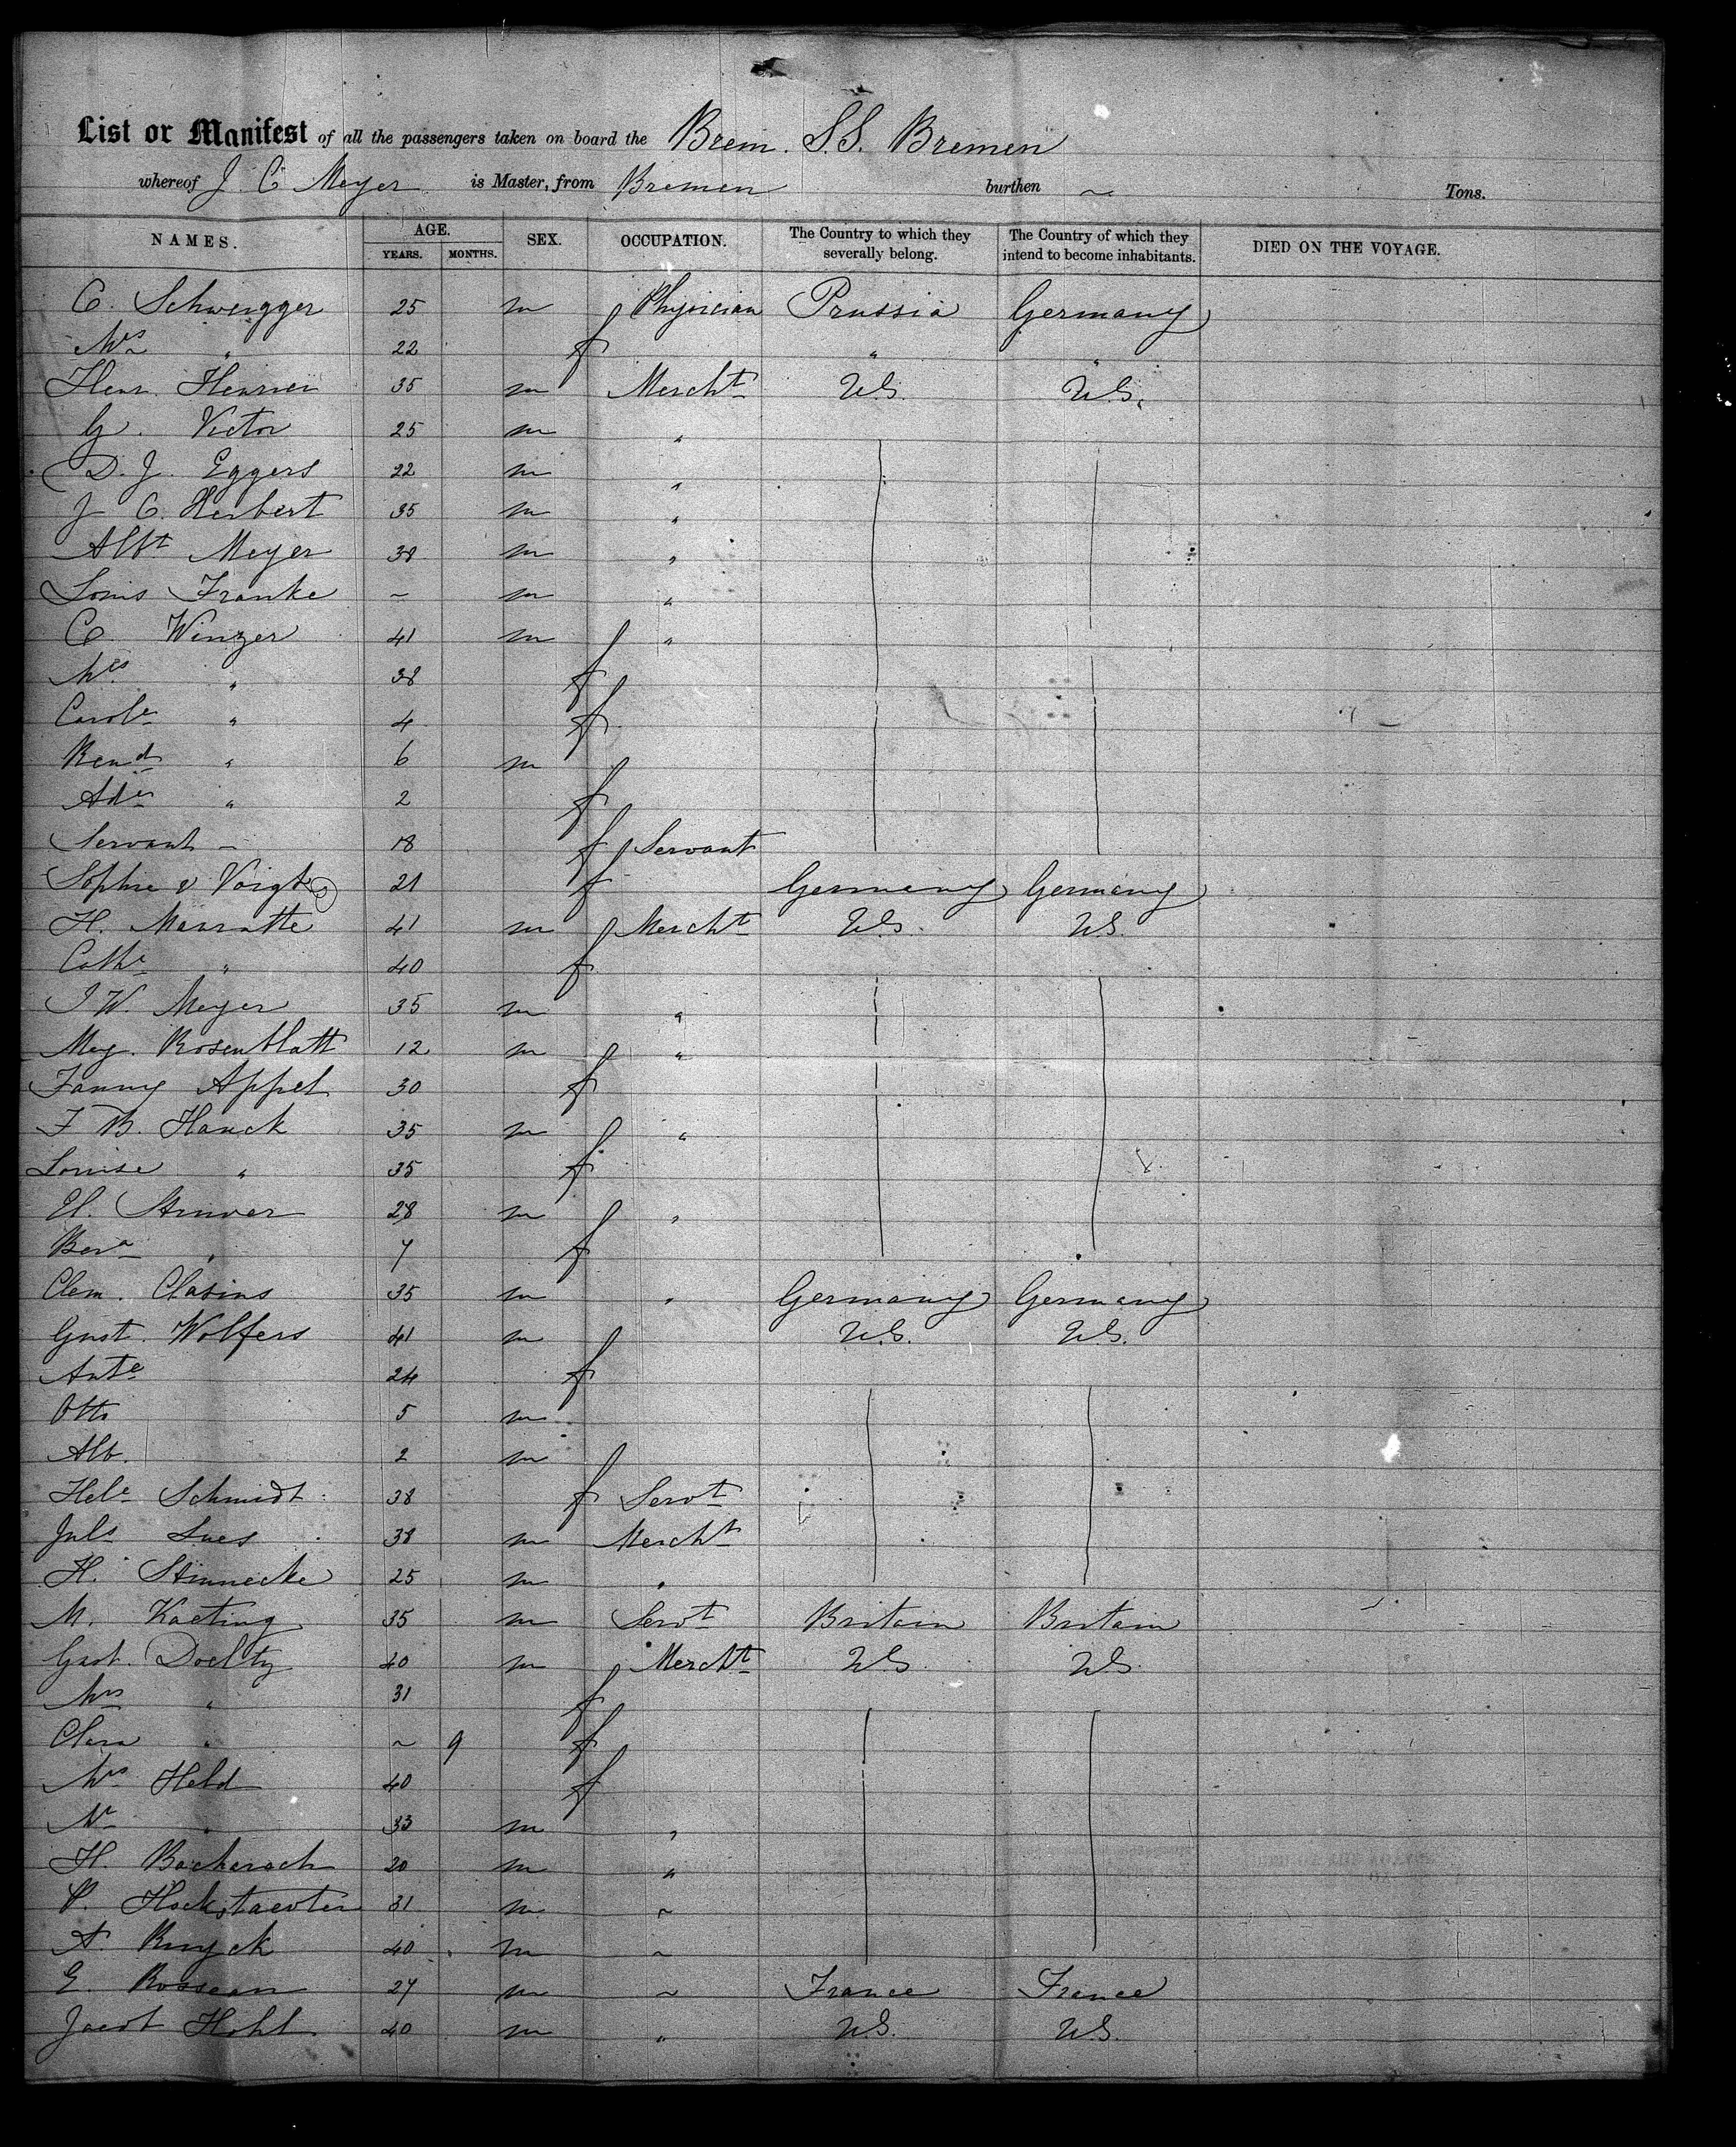 List or Manifest of all the passengers taken on board the Brem. S.S. Bremen
whereof J. C. Meyer is Master, from Bremen burthen ~ Tons.
NAMES. AGE. YEARS. MONTHS. SEX. OCCUPATION. The Country to which they severally belong. The Country of which they intend to become inhabitants. DIED ON THE VOYAGE.
C. Schweigger 25 m Physician Prussia Germany
Mrs " 22 f " "
35 m Mercht U.S. U.S.
G. Victor 25 m "
D. J. Eggers 22 m "
J C. Herbert 35 m "
Albt Meyer 38 m "
Louis Franke ~ m "
C. Winzer 41 m "
Mrs " 38 f
Carole " 4 f
" 6 m
" 2 f
Servant ~ 18 f Servant
Sophie v Voigts 21 f Germany Germany
H. 41 m Mercht U.S. U.S.
Cathe " 40 f
J W. Meyer 35 m "
Mey. Rosenblatt 12 m "
Fanny Appel 30 f
F B. Hauck 35 m "
Louise " 35 f
28 m "
Bera " 7 f
Clem. Clasius 35 m " Germany Germany
Gust. Wolfers 41 m U.S. U.S.
Ante 24 f
Otto 5 m
Alb. 2 m
Hele Schmidt 38 f Servt
Juls 38 m Mercht
H. Stinnecke 25 m "
M. Kaeting 35 m Servt Britain Britain
Gust. Doelty 40 m Mercht U.S. U.S.
Mrs " 31 f
Clara " ~ 9 f
Mrs Held 40 f
Mr " 33 m "
H. Bacharach 20 m "
31 m ~
A. Ruyck 40 m ~
E. Rosseau 27 m ~ France France
Jacob Hohl 40 m " U.S. U.S.